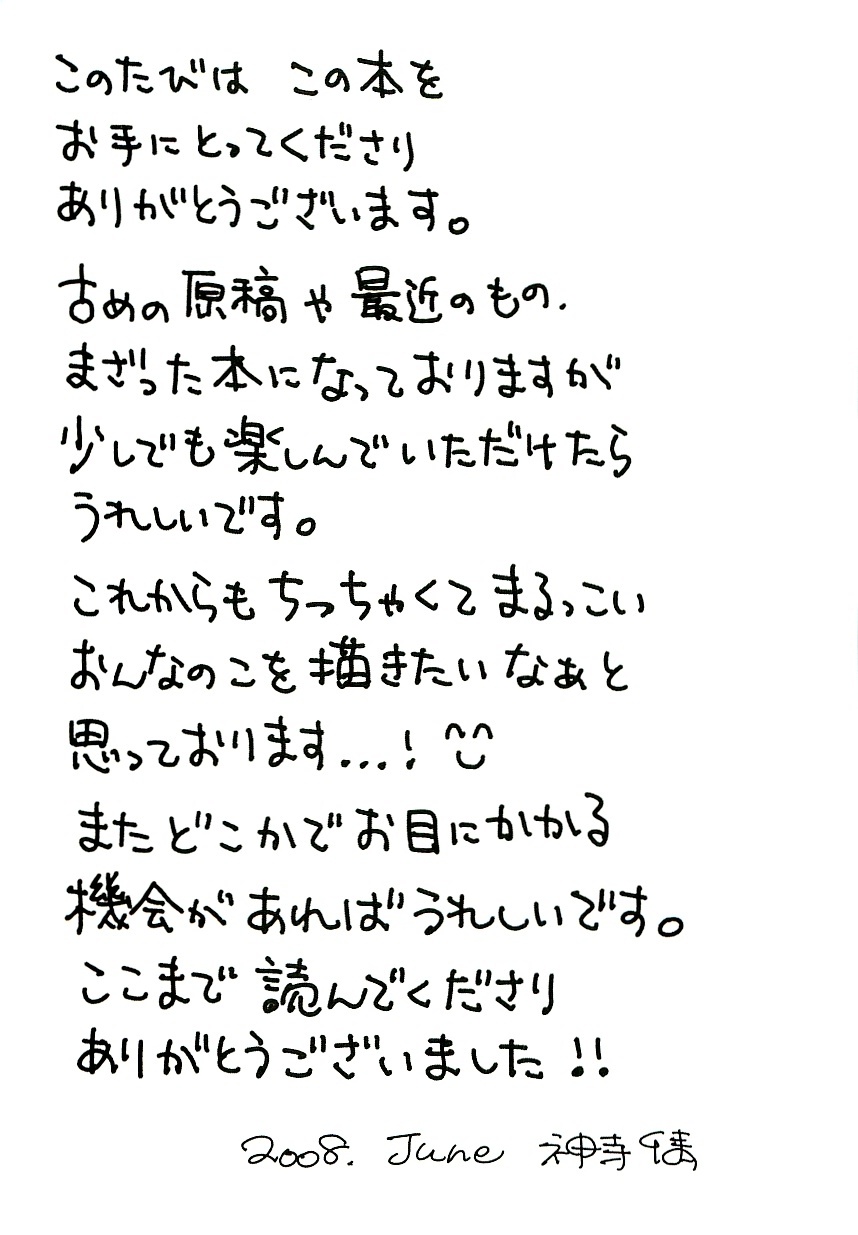 このたびは この本を
お手にとってくださり
ありがとうございます。
古めの原稿や最近のもの、
まざった本になっておりますが
少しでも楽しんでいただけたら
うれしいです。
これからもちっちゃくてまるっこい
おんなのこを描きたいなぁと
思っております...!
またどこかでお目にかかる
機会があればうれしいです。
ここまで読んでくださり
ありがとうございました!!
2008. June 神寺